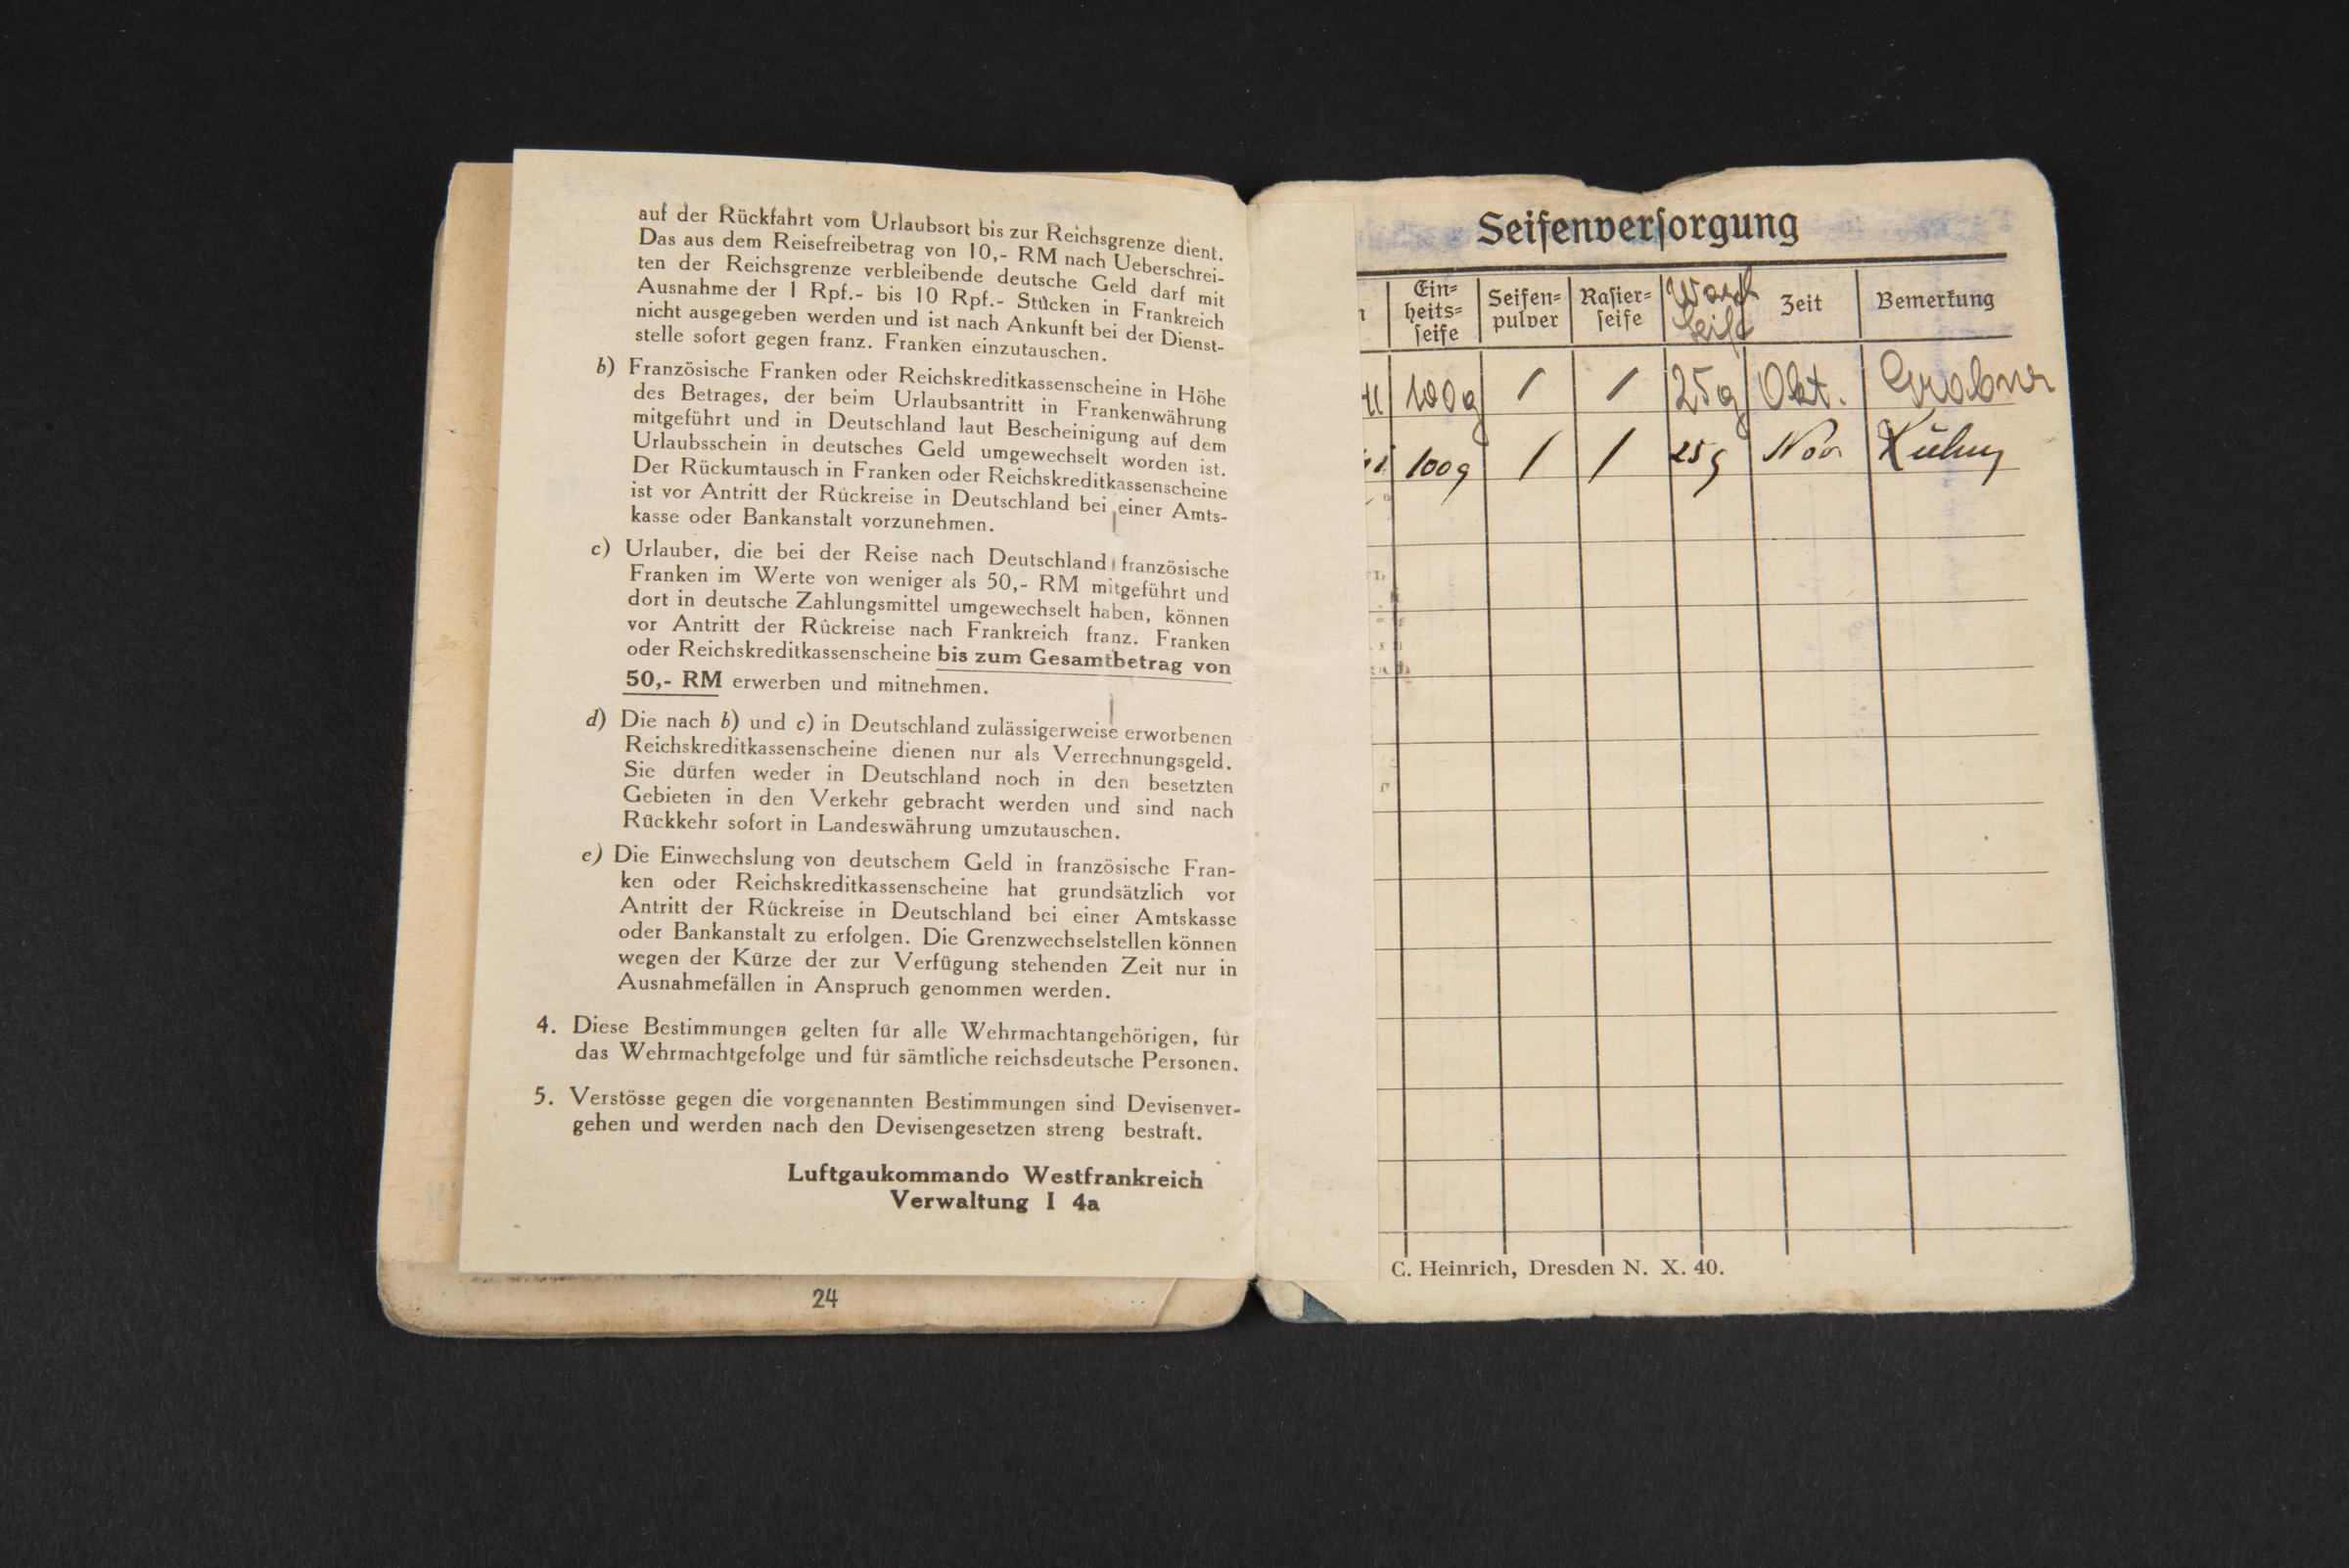 auf der Rückfahrt vom Urlaubsort bis zur Reichsgrenze dient.
Das aus dem Reisefreibetrag von 10,- RM nach Ueberschrei-
ten der Reichsgrenze verbleibende deutsche Geld darf mit
Ausnahme der 1 Rpf.- bis 10 Rpf.- Stücken in Frankreich
nicht ausgegeben werden und ist nach Ankunft bei der Dienst-
stelle sofort gegen franz. Franken einzutauschen.
b) Französische Franken oder Reichskreditkassenscheine in Höhe
des Betrages, der beim Urlaubsantritt in Frankenwährung
mitgeführt und in Deutschland laut Bescheinigung auf dem
Urlaubsschein in deutsches Geld umgewechselt worden ist.
Der Rückumtausch in Franken oder Reichskreditkassenscheine
ist vor Antritt der Rückreise in Deutschland bei einer Amts-
kasse oder Bankanstalt vorzunehmen.
c) Urlauber, die bei der Reise nach Deutschland französische
Franken im Werte von weniger als 50,- RM mitgeführt und
dort in deutsche Zahlungsmittel umgewechselt haben, können
vor Antritt der Rückreise nach Frankreich franz. Franken
oder Reichskreditkassenscheine bis zum Gesamtbetrag von
50,- RM erwerben und mitnehmen.
d) Die nach b) und c) in Deutschland zulässigerweise erworbenen
Reichskreditkassenscheine dienen nur als Verrechnungsgeld.
Sie dürfen weder in Deutschland noch in den besetzten
Gebieten in den Verkehr gebracht werden und sind nach
Rückkehr sofort in Landeswährung umzutauschen.
e) Die Einwechslung von deutschem Geld in französische Fran-
ken oder Reichskreditkassenscheine hat grundsätzlich vor
Antritt der Rückreise in Deutschland bei einer Amtskasse
oder Bankanstalt zu erfolgen. Die Grenzwechselstellen können
wegen der Kürze der zur Verfügung stehenden Zeit nur in
Ausnahmefällen in Anspruch genommen werden.
4. Diese Bestimmungen gelten für alle Wehrmachtangehörigen, für
das Wehrmachtgefolge und für sämtliche reichsdeutsche Personen.
5. Verstösse gegen die vorgenannten Bestimmungen sind Devisenver-
gehen und werden nach den Devisengesetzen streng bestraft.
Luftgaukommando Westfrankreich
Verwaltung I 4a
24
Seifenverſorgung
Ein=
heits=
ſeife
Seifen=
pulver
Raſier=
ſeife
Wasch
seife
Zeit
Bemerkung
100g / / 25g Okt. Grabner
100g / / 25g Nov
C. Heinrich, Dresden N. X. 40.